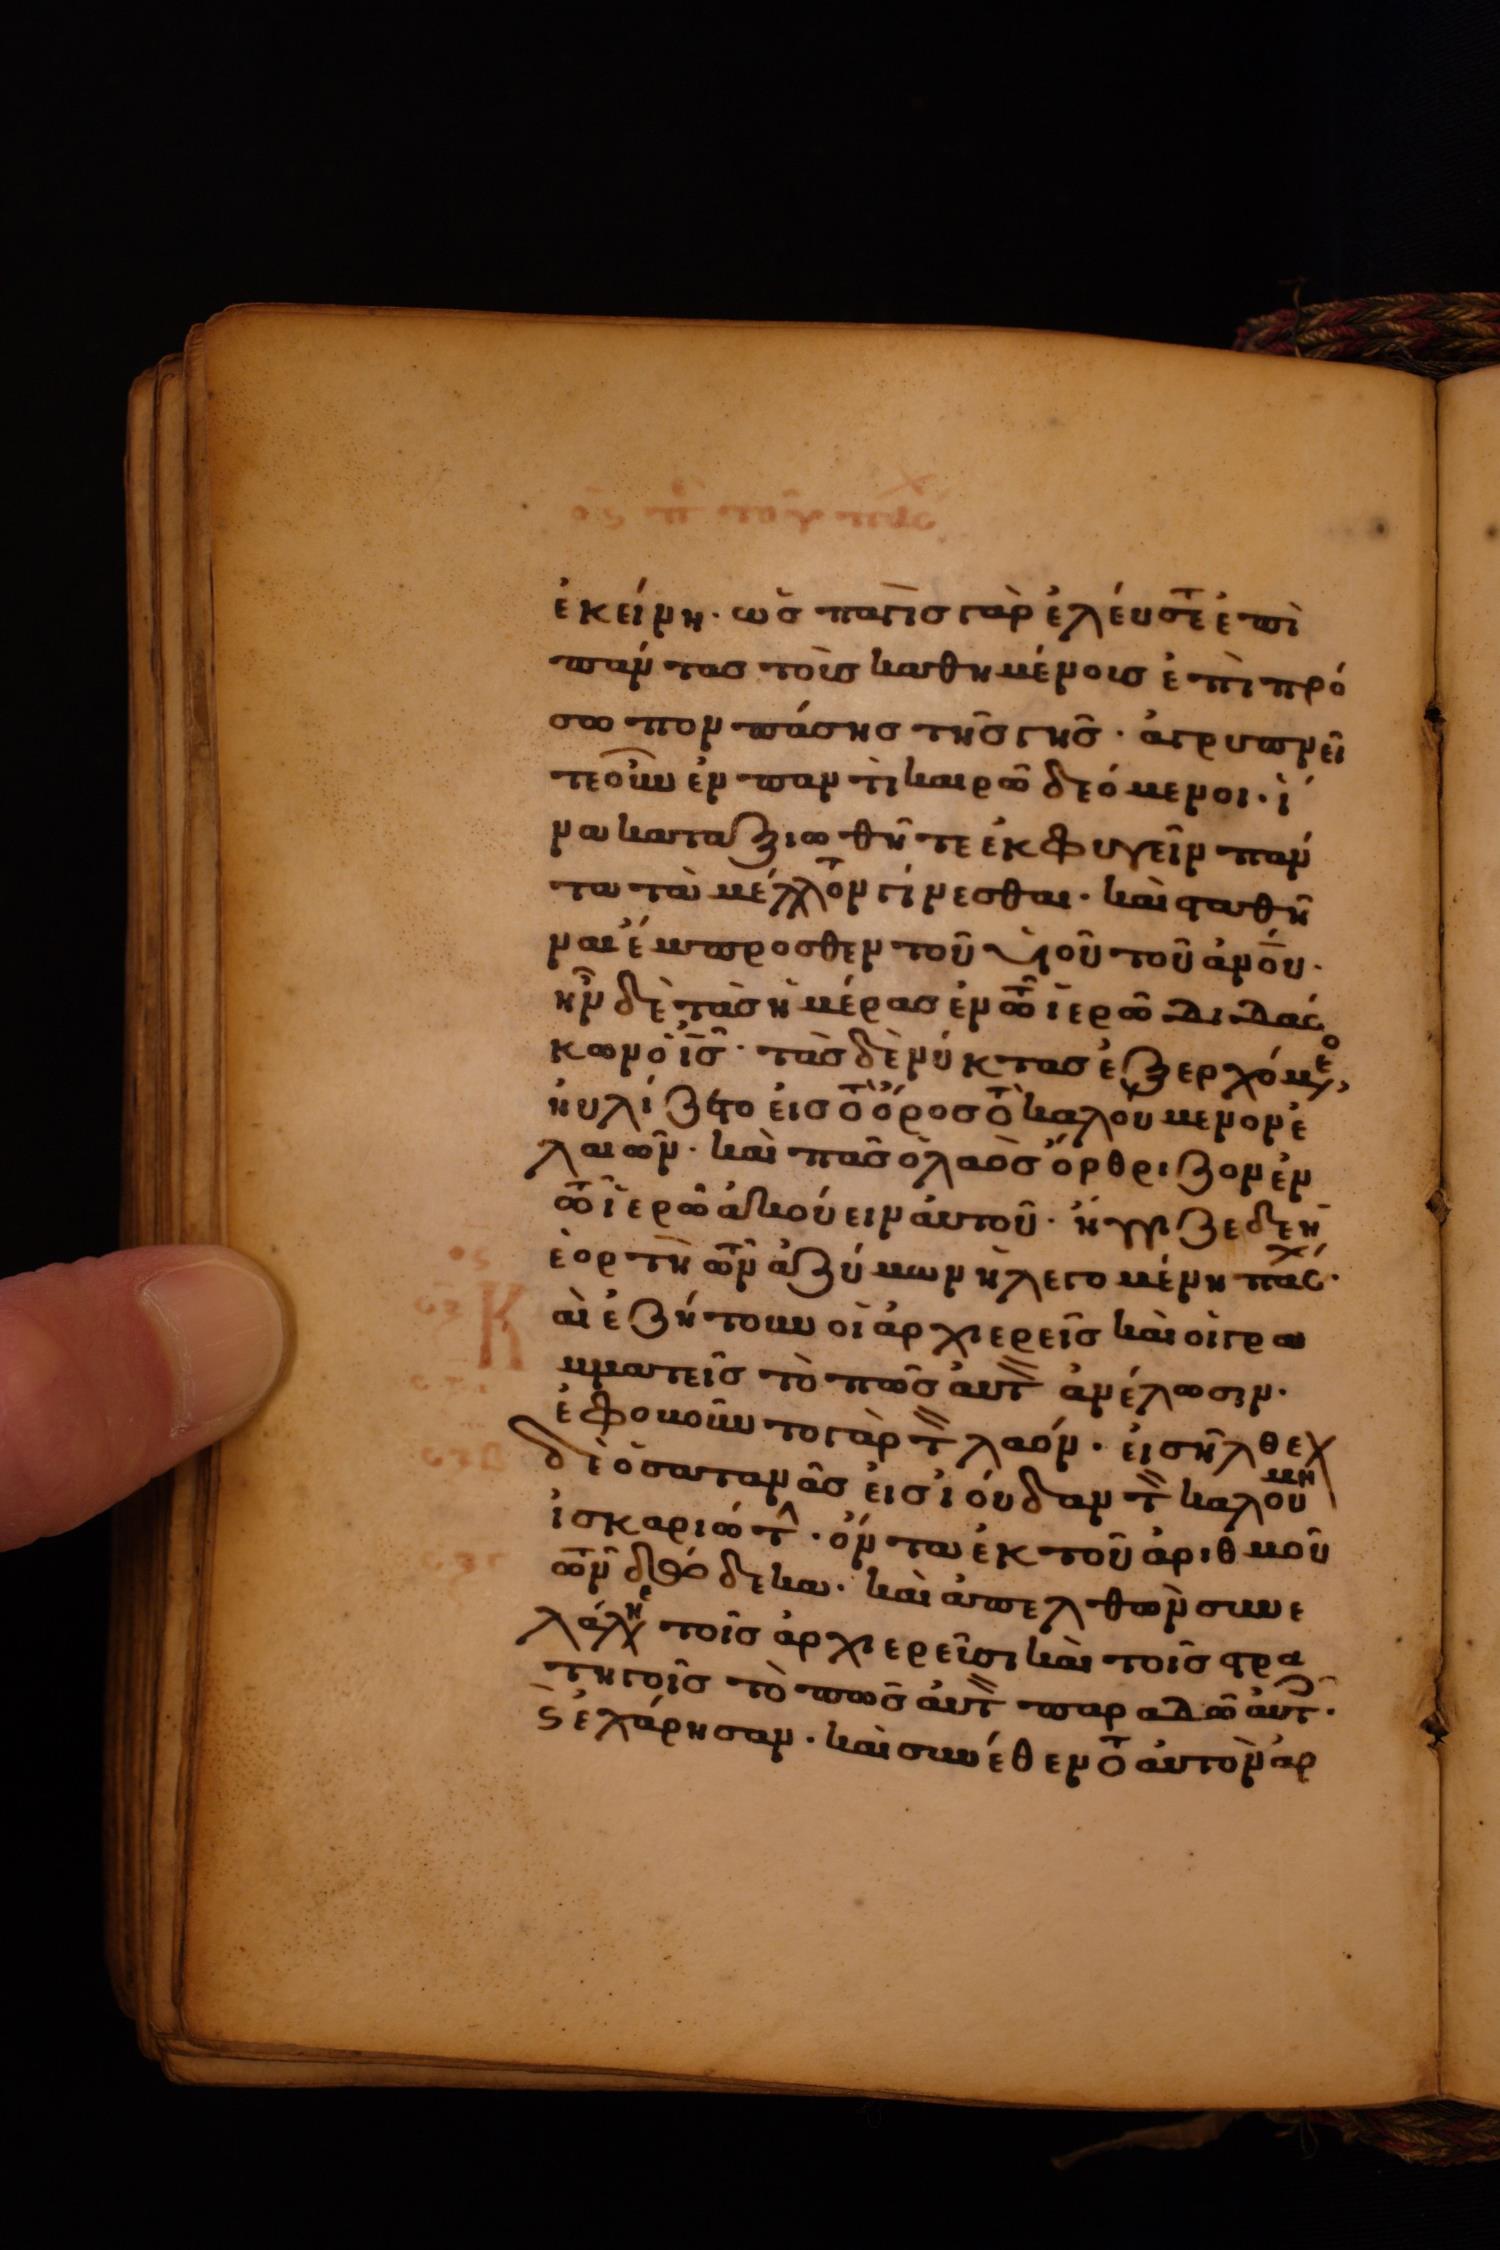 ἐκείνη· ὡσ παγὶσ γὰρ ἐλεύσετ ἐπὶ
πάντασ τοὶσ καθημένοισ ἐπὶ πρό
σωπον πάσησ τῆσ γῆσ· ἀγρυπνεῖ
τε οὖν ἐν παντὶ καιρῶ δεόμενοι· ἵ
να καταξιωθῆτε ἐκφυγεῖν πάν
τα τὰ μέλλοντ γίνεσθαι· καὶ σταθῆ
ναι ἔμπροσθεν τοῦ υἱοῦ τοῦ ἀνου·
ἦν δὲ τὰσ ἡμέρασ ἐν τῶ ἱερῶ διδάσ
κων ὁ ἰσ· τὰσ δὲ νύκτασ ἐξερχόμεο
ηὐλίζετο εἰσ τὸ ὄροσ τὸ καλουμενον ἐ
λαιῶν· καὶ πᾶσ ὁ λαὸσ ὄρθριζον ἐν
τῶ ἱερῶ ἀκούειν αὐτοῦ· ἤγγιζε δε ἡ
ἑορτὴ τῶν ἀζύμων ἡ λεγομένη πάσχ·
αὶ ἐζήτουν οἱ ἀρχιερεῖσ καὶ οἱ γρα
μματεῖσ τὸ πῶσ αὐτ ἀνέλωσιν·
ἐφοβοῦντο γὰρ τ λαόν· εἰσῆλθε
δὲ ὁ σατανᾶσ εἰσ ἰούδαν τ καλούμεν
ἰσκαριώτ· ὄντα ἐκ τοῦ ἀριθμοῦ
τῶν δώδεκα· καὶ ἀπελθὼν συνε
λάλησε τοῖσ ἀρχιερεῖσι καὶ τοῖσ στρα
τηγοῖσ τὸ πῶσ αὐτ παραδῶ αὐτ·
ϛ ἐχάρησαν· καὶ συνέθεντο αὐτὸν ἀρ